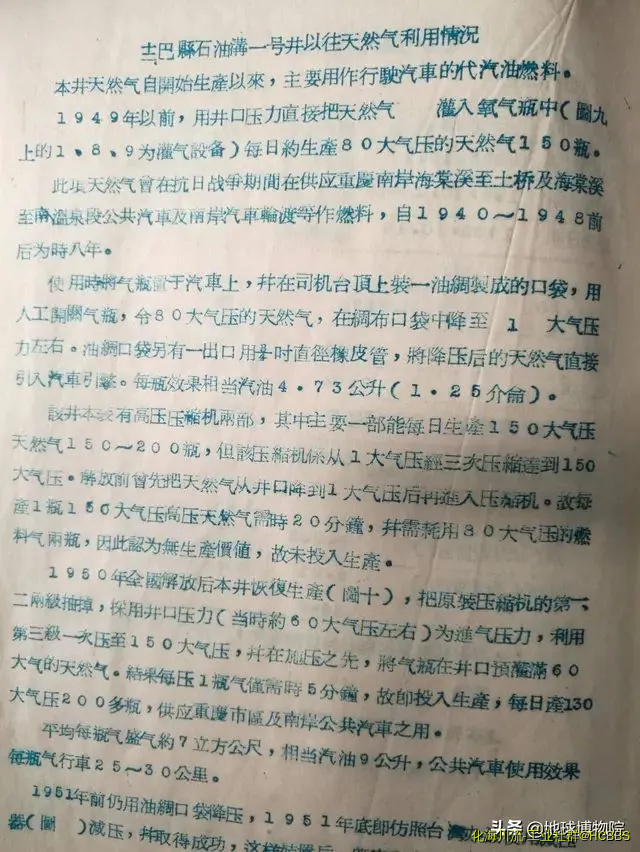 士巴縣石油溝一号井以往天然气利用情況
本井天然气自開始生產以來，主要用作行駛汽車的代汽油燃料。
1949年以前，用井口压力直接把天然气　　灌入氧气瓶中（圖九
上的1、8、9为灌气設备）每日約生產80大气压的天然气150瓶。
此項天然气曾在抗日战爭期間在供应重慶南岸海棠溪至土桥及海棠溪
至南溫泉段公共汽車及南岸汽車輪渡等作燃料，自1940～1948前
后为時八年。
使用時將气瓶置于汽車上，幷在司机台頂上裝一油綢製成的口袋，用
人工開關气瓶，令80大气压的天然气，在綢布口袋中降至　1　大气压
力左右。油綢口袋另有一出口用吋直徑橡皮管，將降压后的天然气直接
引入汽車引擎。每瓶效果相当汽油4·73公升（1·25介侖）。
該井本裝有高压压縮机兩部，其中主要一部能每日生產150大气压
天然气150～200瓶，但該压縮机係从1大气压經三次压縮達到150
大气压。解放前曾先把天然气从井口降到1大气压后再進入压縮机。故每
產1瓶150大气压高压天然气需時20分鐘，幷需耗用80大气压的燃
料气兩瓶，因此認为無生產價值，故未投入生產。
1950年全國解放后本井恢復生產（圖十），把原裝压縮机的第一、
二兩級抽掉，採用井口压力（当時約60大气压左右）为進气压力，利用
第三級一次压至150大气压，幷在施压之先，將气瓶在井口預灌滿60
大气的天然气。結果每压1瓶气僅需時5分鐘，故卽投入生產，每日產130
大气压200多瓶，供应重慶市區及南岸公共汽車之用。
平均每瓶气盛气約7立方公尺，相当汽油9公升，公共汽車使用效果
每瓶气行車25～30公里。
1951年前仍用油綢口袋降压，1951年底卽仿照台
器（圖　　）減压，幷取得成功，这样
头条 @地球博物院